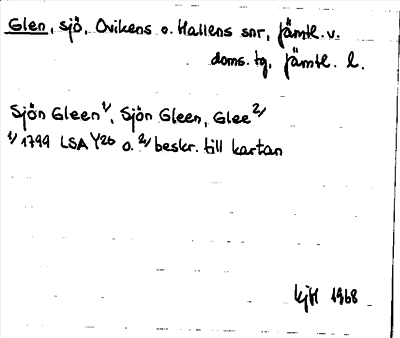 Glen, sjö, Ovikens o. Hallens snr, Jämtl. v.
doms. tg, Jämtl. l.
Sjön Gleen 1/, Sjön Gleen, Glee 2/
1/ 1799 LSA Y26 o. 2/ beskr. till kartan
KjH 1968